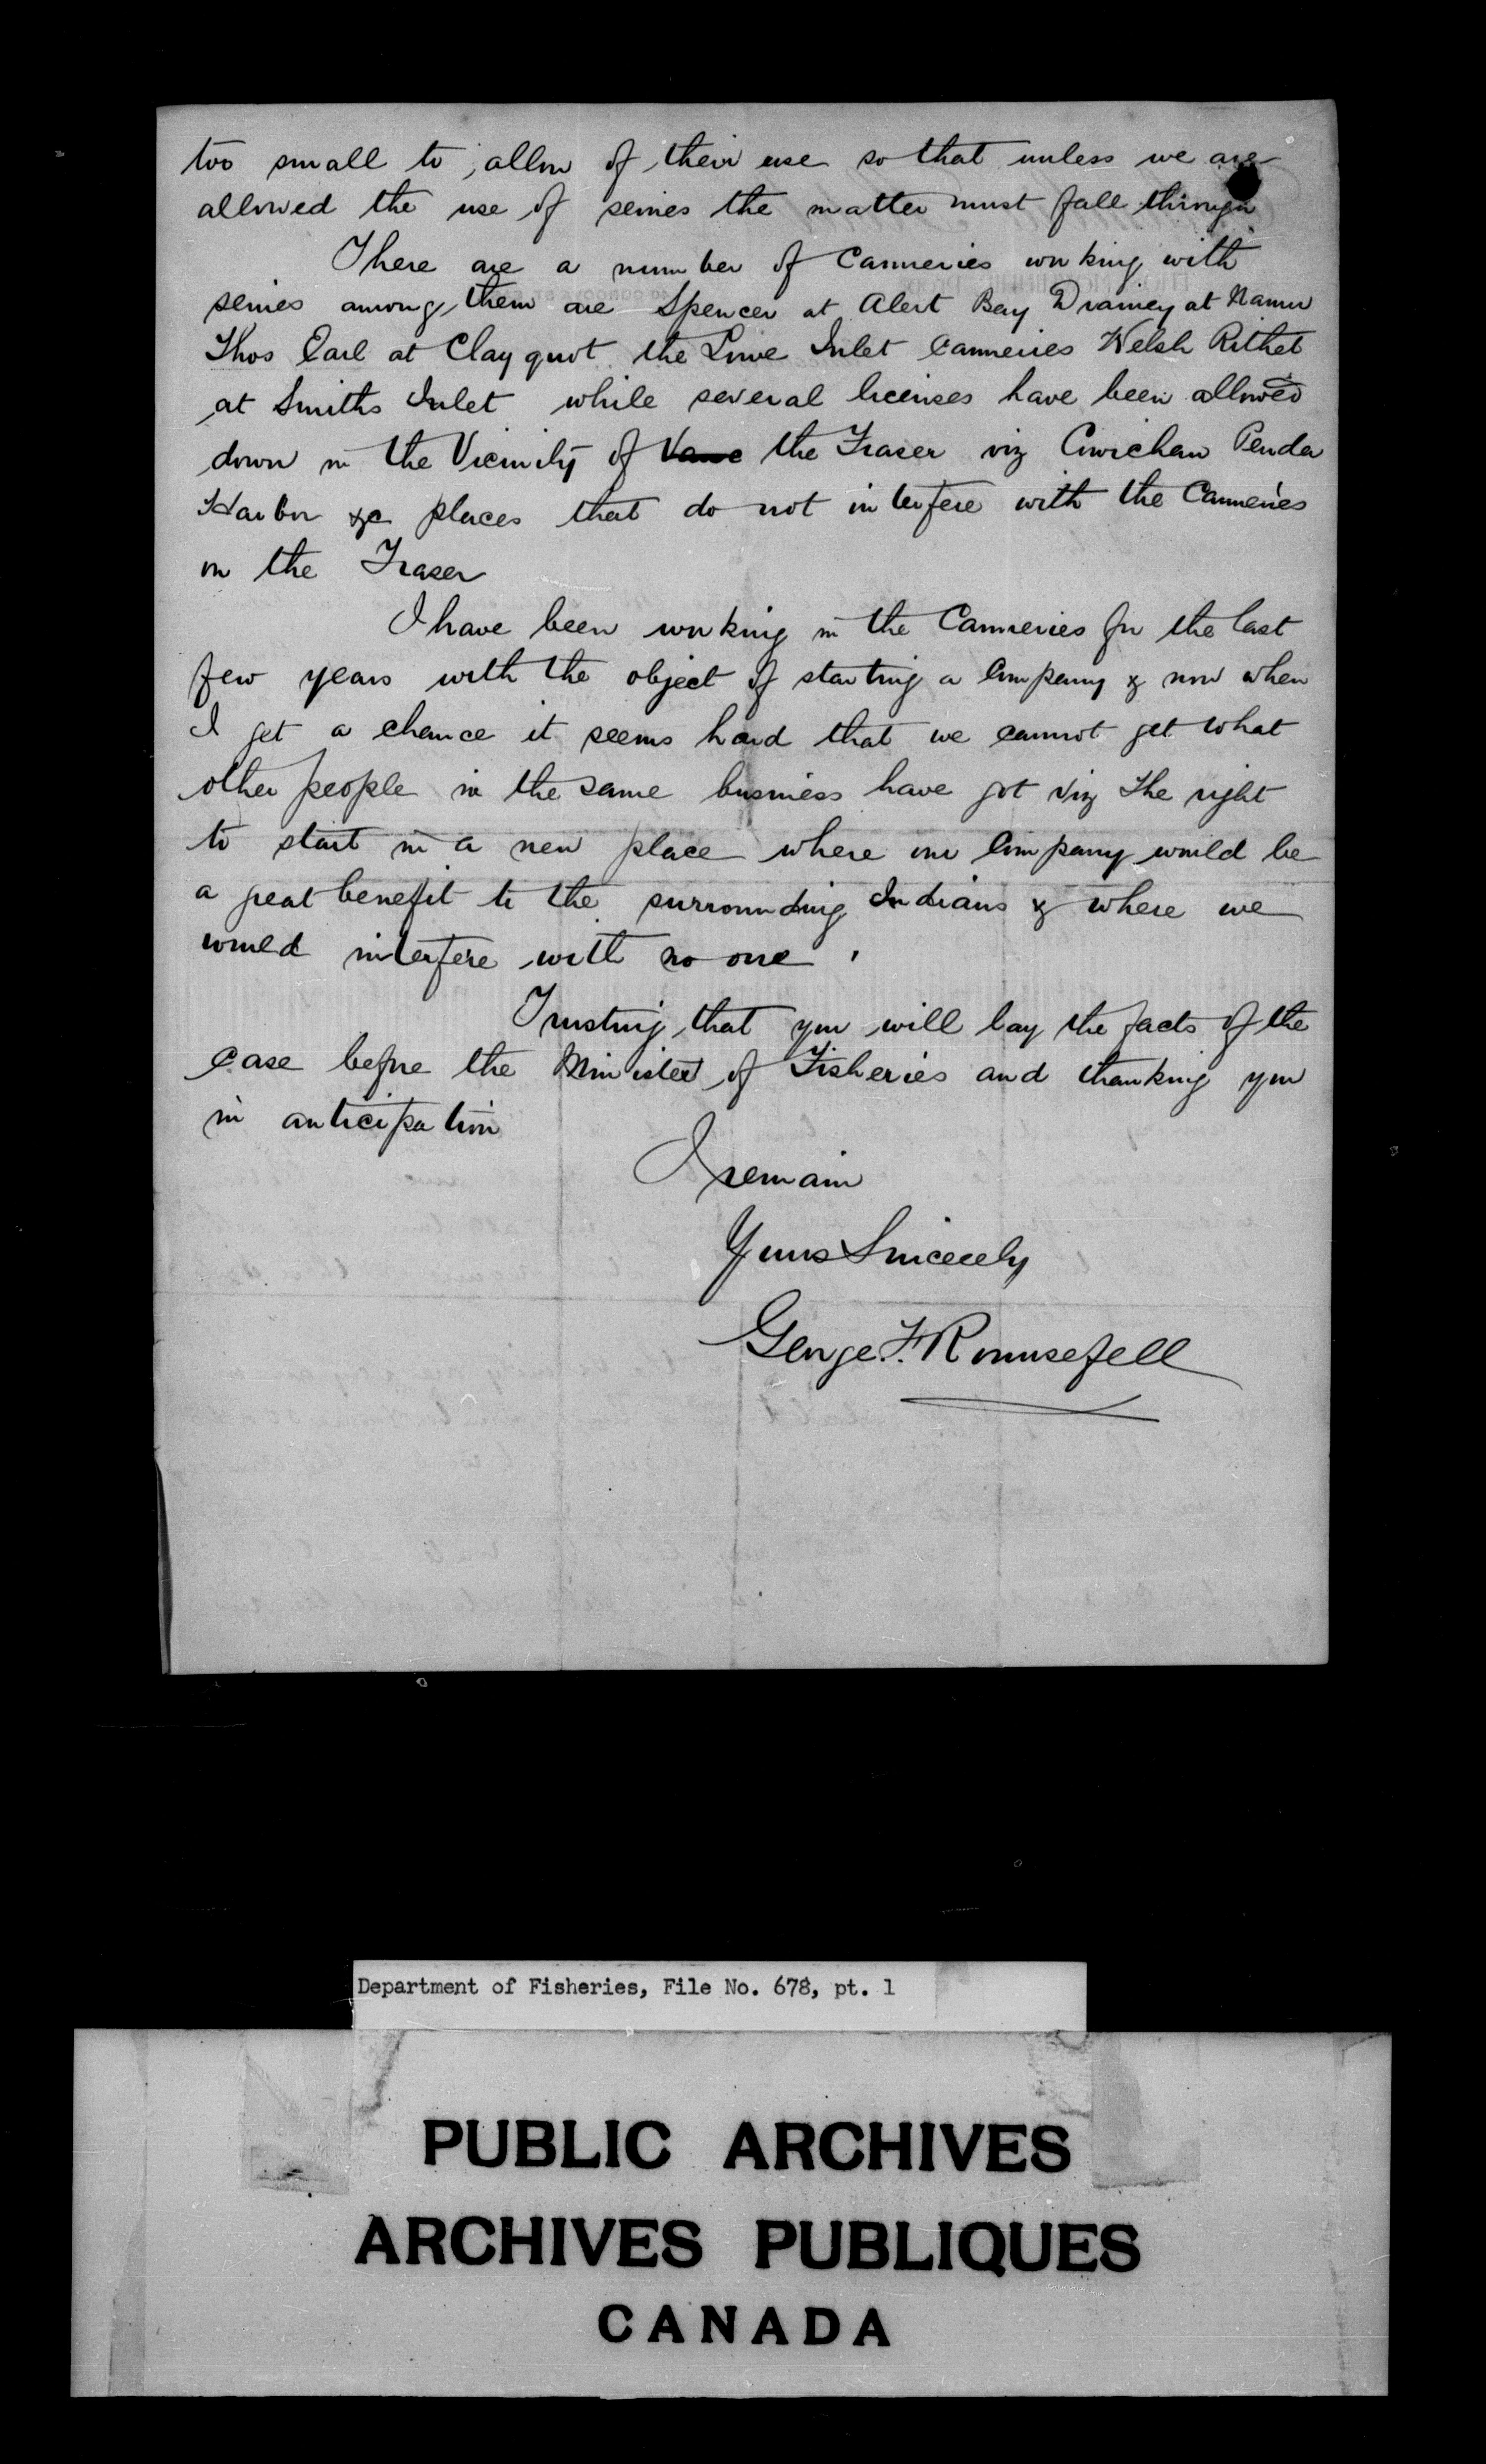 too small to allow of their use so that unless we are
allowed the use of seines the matter must fall through
There are a number of Canneries working with
seines among them are Spencer at Alert Bay Drainey at Namu
Thos Earl at Clayquot the Lowe Inlet Canneries Welsh Rithet
at Smiths Inlet while several licenses have been allowed
down in the Vicinity of Vanc the Fraser viz Cowichan Penda
Harbor &c places that do not interfere with the Canneries
on the Fraser
I have been working in the Canneries for the last
few years with the object of starting a Company & now when
I get a chance it seems hard that we cannot get what
other people in the same business have got viz the right
to start in a new place where our Company would be
a great benefit to the surrounding Indians & where we
would interfere with no one.
Trusting that you will lay the facts of the
case before the Minister of Fisheries and thanking you
in anticipation
I remain
Yours Sincerely
George F. Rounsefell
Department of Fisheries, File No. 678, pt. 1
PUBLIC ARCHIVES
ARCHIVES PUBLIQUES
CANADA